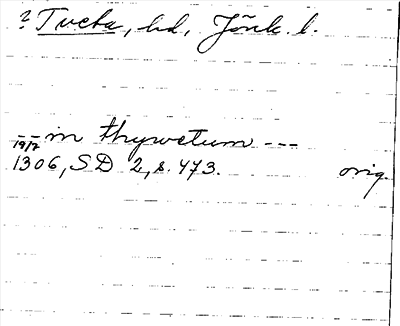 ? Tveta, hd, Jönk. l.
--- in thywetum ---
19/7
1306, SD 2, s. 473. orig.